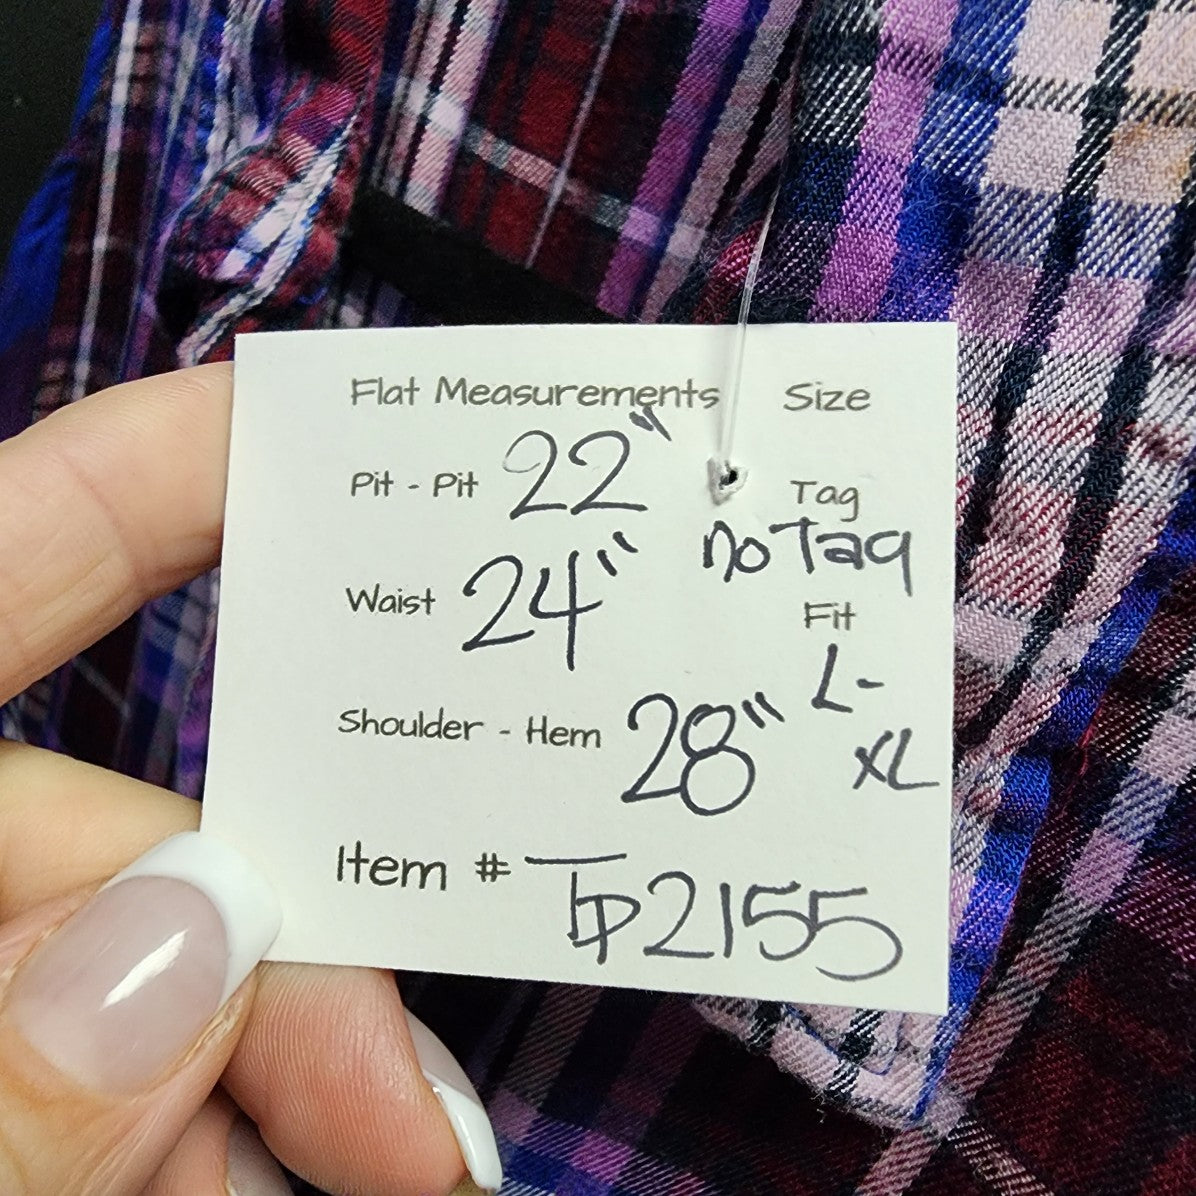 Flat Measurements Size
Pit - Pit 22" Tag
no Tag
Waist 24" Fit
L-
XL
Shoulder - Hem 28"
Item # TP2155